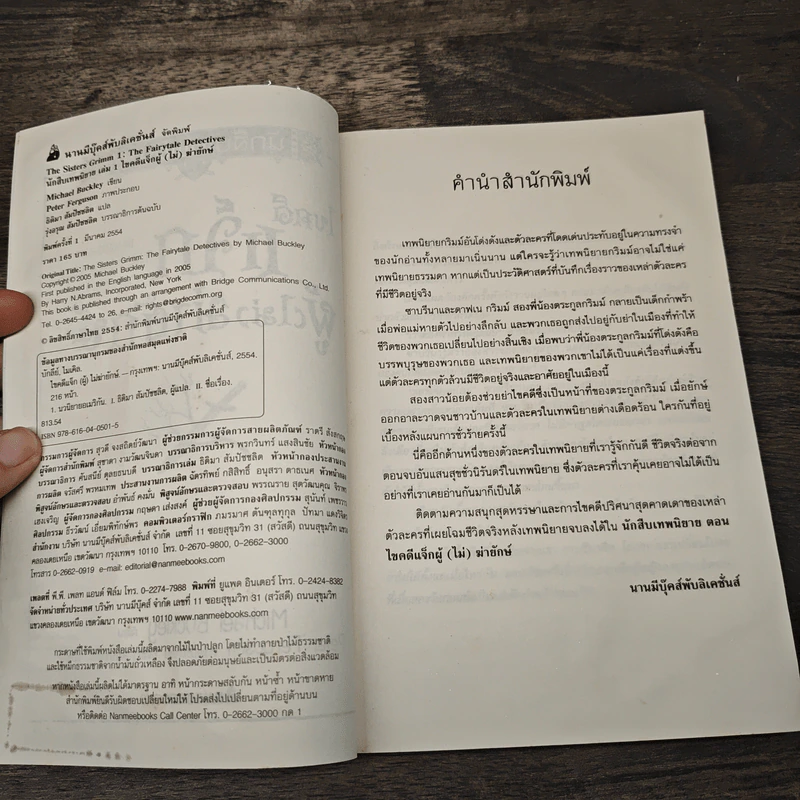 นานมีบุ๊คส์พับลิเคชั่นส์ จัดพิมพ์
The Sisters Grimm 1: The Fairytale Detectives
นักสืบเทพนิยาย เล่ม 1 ไขคดีแจ็กผู้ (ไม่) ฆ่ายักษ์
Michael Buckley เขียน
Peter Ferguson ภาพประกอบ
ธิติมา สัมปัชชลิต แปล
รุ่งอรุณ สัมปัชชลิต บรรณาธิการต้นฉบับ
พิมพ์ครั้งที่ 1 มีนาคม 2554
ราคา 165 บาท
Original Title: The Sisters Grimm: The Fairytale Detectives by Michael Buckley
Copyright © 2005 Michael Buckley
First published in the English language in 2005
By Harry N.Abrams, Incorporated, New York
This book is published through an arrangement with Bridge Communications Co., Ltd.
Tel. 0-2645-4424 to 26, e-mail: rights@brigdecomm.org
© ลิขสิทธิ์ภาษาไทย 2554: สำนักพิมพ์นานมีบุ๊คส์พับลิเคชั่นส์
ข้อมูลทางบรรณานุกรมของสำนักหอสมุดแห่งชาติ
บักลีย์, ไมเคิล.
ไขคดีแจ็ก (ผู้) ไม่ฆ่ายักษ์ — กรุงเทพฯ: นานมีบุ๊คส์พับลิเคชั่นส์, 2554.
216 หน้า.
1. นวนิยายอเมริกัน. I. ธิติมา สัมปัชชลิต, ผู้แปล. II. ชื่อเรื่อง.
813.54
ISBN 978-616-04-0501-5
กรรมการผู้จัดการ สุวดี จงสถิตย์วัฒนา ผู้ช่วยกรรมการผู้จัดการสายผลิตภัณฑ์ ราตรี
ผู้จัดการสำนักพิมพ์ สุชาดา งามวัฒนจินดา บรรณาธิการบริหาร พรกวินทร์ แสงสินชัย
บรรณาธิการ คันสนีย์ ดุลยธนบดี บรรณาธิการเล่ม ธิติมา สัมปัชชลิต หัวหน้ากองประสานงาน
การผลิต จรัสศรี พรหมเทพ ประสานงานการผลิต ฉัตรทิพย์ กสิสิทธิ์ อนุสรา ดาธเนศ
พิสูจน์อักษรและตรวจสอบ อำพันธ์ คงมั่น พิสูจน์อักษรและตรวจสอบ พรรณราย สุดวัฒนคุณ
เฮงเจริญ ผู้จัดการกองศิลปกรรม กฤษดา เส่งสงค์ ผู้ช่วยผู้จัดการกองศิลปกรรม สุนันท์
ศิลปกรรม ธีรวัฒน์ เอี่ยมพิทักษ์พร คอมพิวเตอร์กราฟิก ภมรมาศ ตันฑุลฑุกุล ปัทมา
สำนักงาน บริษัท นานมีบุ๊คส์ จำกัด เลขที่ 11 ซอยสุขุมวิท 31 (สวัสดี) ถนนสุขุมวิท
คลองเตยเหนือ เขตวัฒนา กรุงเทพฯ 10110 โทร. 0-2670-9800, 0-2662-3000
โทรสาร 0-2662-0919 e-mail: editorial@nanmeebooks.com
เพลตที่ พี.พี. เพลท แอนด์ ฟิล์ม โทร. 0-2274-7988 พิมพ์ที่ ยูแพด อินเตอร์ โทร. 0-2424-8382
จัดจำหน่ายทั่วประเทศ บริษัท นานมีบุ๊คส์ จำกัด เลขที่ 11 ซอยสุขุมวิท 31 (สวัสดี) ถนนสุขุมวิท
แขวงคลองเตยเหนือ เขตวัฒนา กรุงเทพฯ 10110 www.nanmeebooks.com
กระดาษที่ใช้พิมพ์หนังสือเล่มนี้ผลิตจากไม้ในป่าปลูก โดยไม่ทำลายป่าไม้ธรรมชาติ
และใช้หมึกธรรมชาติจากน้ำมันถั่วเหลือง จึงปลอดภัยต่อมนุษย์และเป็นมิตรต่อสิ่งแวดล้อม
หากหนังสือเล่มนี้ผลิตไม่ได้มาตรฐาน อาทิ หน้ากระดาษสลับกัน หน้าซ้ำ หน้าขาดหาย
สำนักพิมพ์ยินดีรับผิดชอบเปลี่ยนใหม่ให้ โปรดส่งไปเปลี่ยนตามที่อยู่ด้านบน
หรือติดต่อ Nanmeebooks Call Center โทร. 0-2662-3000 กด 1
คำนำสำนักพิมพ์
เทพนิยายกริมม์อันโด่งดังและตัวละครที่โดดเด่นประทับอยู่ในความทรงจำ
ของนักอ่านทั้งหลายมาเนิ่นนาน แต่ใครจะรู้ว่าเทพนิยายกริมม์อาจไม่ใช่แค่
เทพนิยายธรรมดา หากแต่เป็นประวัติศาสตร์ที่บันทึกเรื่องราวของเหล่าตัวละคร
ที่มีชีวิตอยู่จริง
ซาบรีนาและดาฟเน กริมม์ สองพี่น้องตระกูลกริมม์ กลายเป็นเด็กกำพร้า
เมื่อพ่อแม่หายตัวไปอย่างลึกลับ และพวกเธอถูกส่งไปอยู่กับย่าในเมืองที่ทำให้
ชีวิตของพวกเธอเปลี่ยนไปอย่างสิ้นเชิง เมื่อพบว่าพี่น้องตระกูลกริมม์ที่โด่งดังคือ
บรรพบุรุษของพวกเธอ และเทพนิยายของพวกเขาไม่ได้เป็นแค่เรื่องที่แต่งขึ้น
แต่ตัวละครทุกตัวล้วนมีชีวิตอยู่จริงและอาศัยอยู่ในเมืองนี้
สองสาวน้อยต้องช่วยย่าไขคดีซึ่งเป็นหน้าที่ของตระกูลกริมม์ เมื่อยักษ์
ออกอาละวาดจนชาวบ้านและตัวละครในเทพนิยายต่างเดือดร้อน ใครกันที่อยู่
เบื้องหลังแผนการชั่วร้ายครั้งนี้
นี่คืออีกด้านหนึ่งของตัวละครในเทพนิยายที่เรารู้จักกันดี ชีวิตจริงต่อจาก
ตอนจบอันแสนสุขชั่วนิรันดร์ในเทพนิยาย ซึ่งตัวละครที่เราคุ้นเคยอาจไม่ได้เป็น
อย่างที่เราเคยอ่านกันมาก็เป็นได้
ติดตามความสนุกสุดหรรษาและการไขคดีปริศนาสุดคาดเดาของเหล่า
ตัวละครที่เผยโฉมชีวิตจริงหลังเทพนิยายจบลงได้ใน นักสืบเทพนิยาย ตอน
ไขคดีแจ็กผู้ (ไม่) ฆ่ายักษ์
นานมีบุ๊คส์พับลิเคชั่นส์